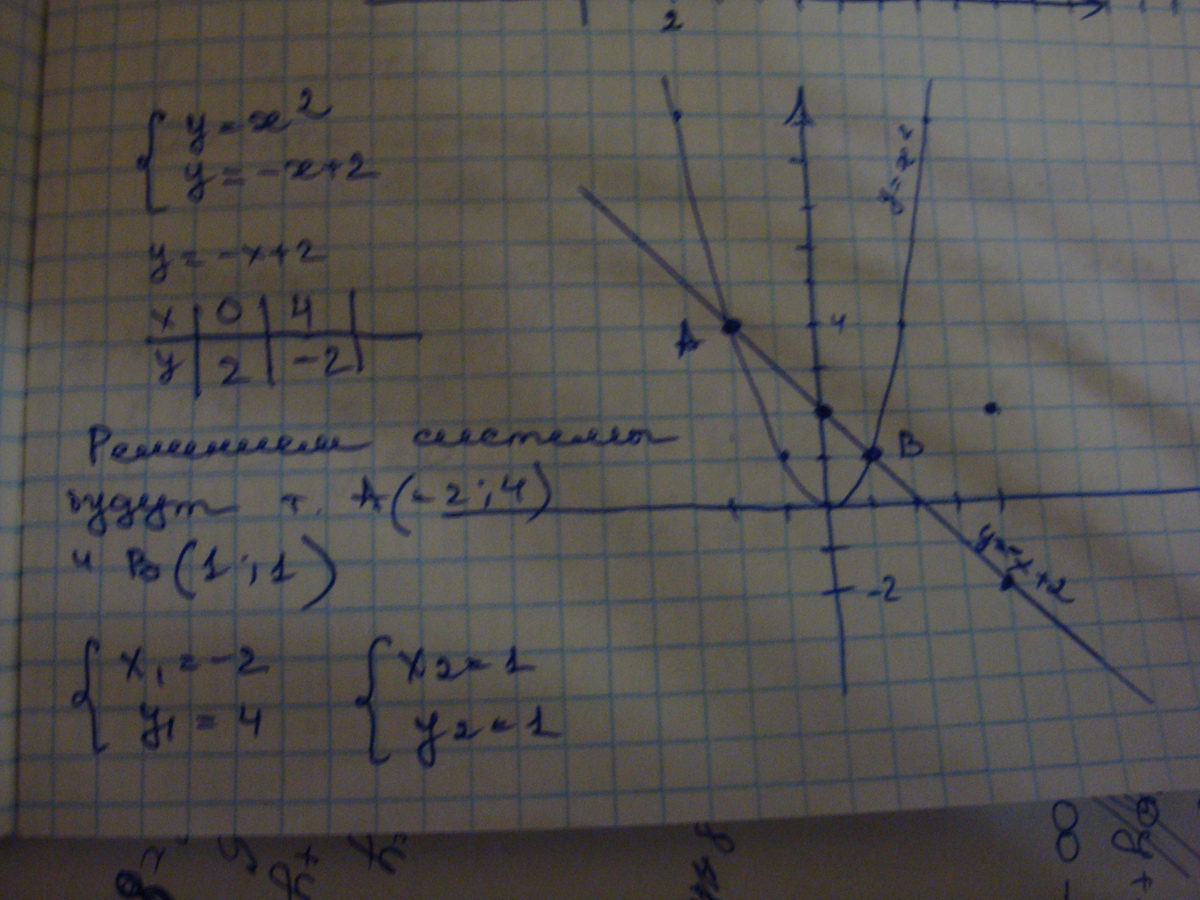 2
y = x²
y = -x+2
y = -x+2
x | 0 | 4 |
y | 2 | -2 |
Решением системы
будут т. A(-2;4)
и B(1;1)
x₁ = -2
y₁ = 4
x2 = 1
y2 = 1
A
4
B
y=-x+2
-2